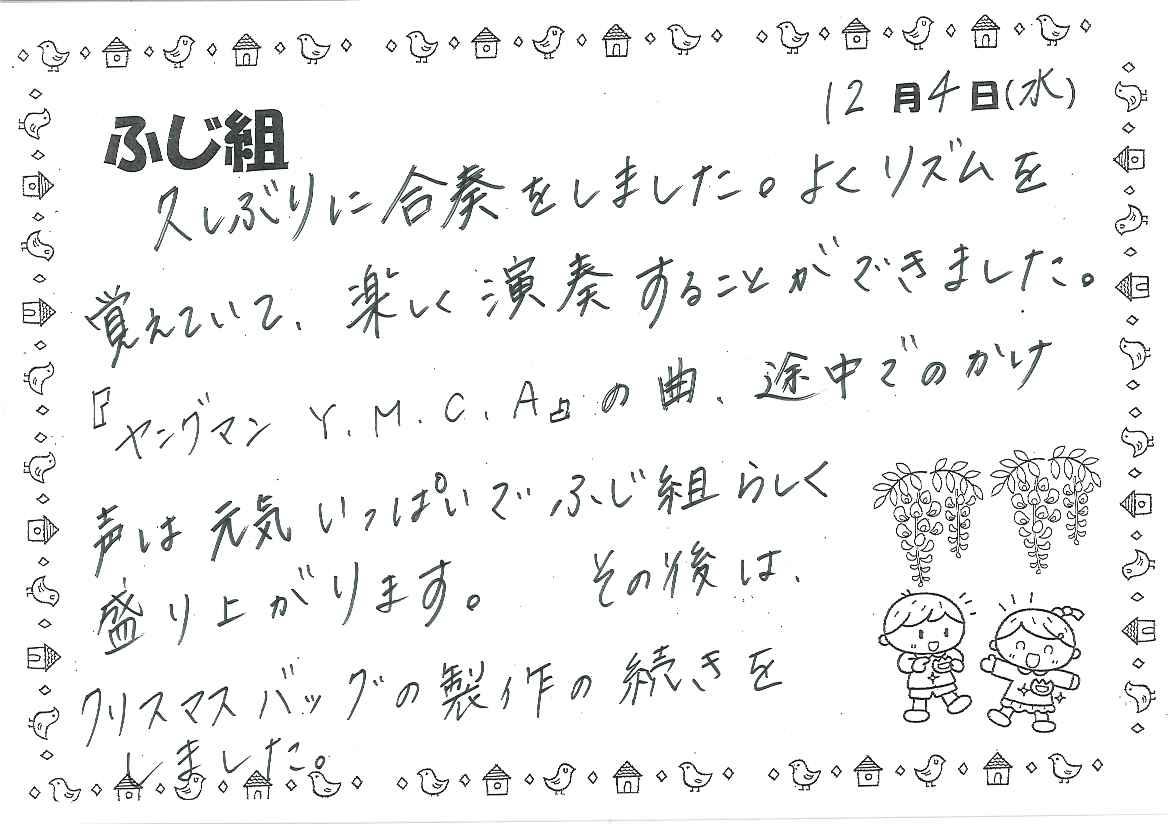 12月4日(水)
ふじ組
久しぶりに合奏をしました。よくリズムを
覚えていて、楽しく演奏することができました。
『ヤングマン Y.M.C.A』の曲、途中でのかけ
声は元気いっぱいでふじ組らしく
盛り上がります。 その後は、
クリスマスバッグの製作の続きを
しました。